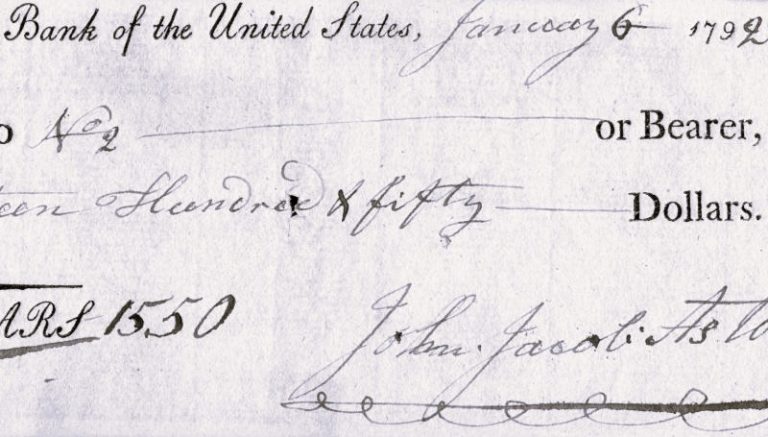 Bank of the United States, January 6 1792
o No 2 or Bearer,
teen Hundred & fifty Dollars.
ARS 1550
John Jacob Asto